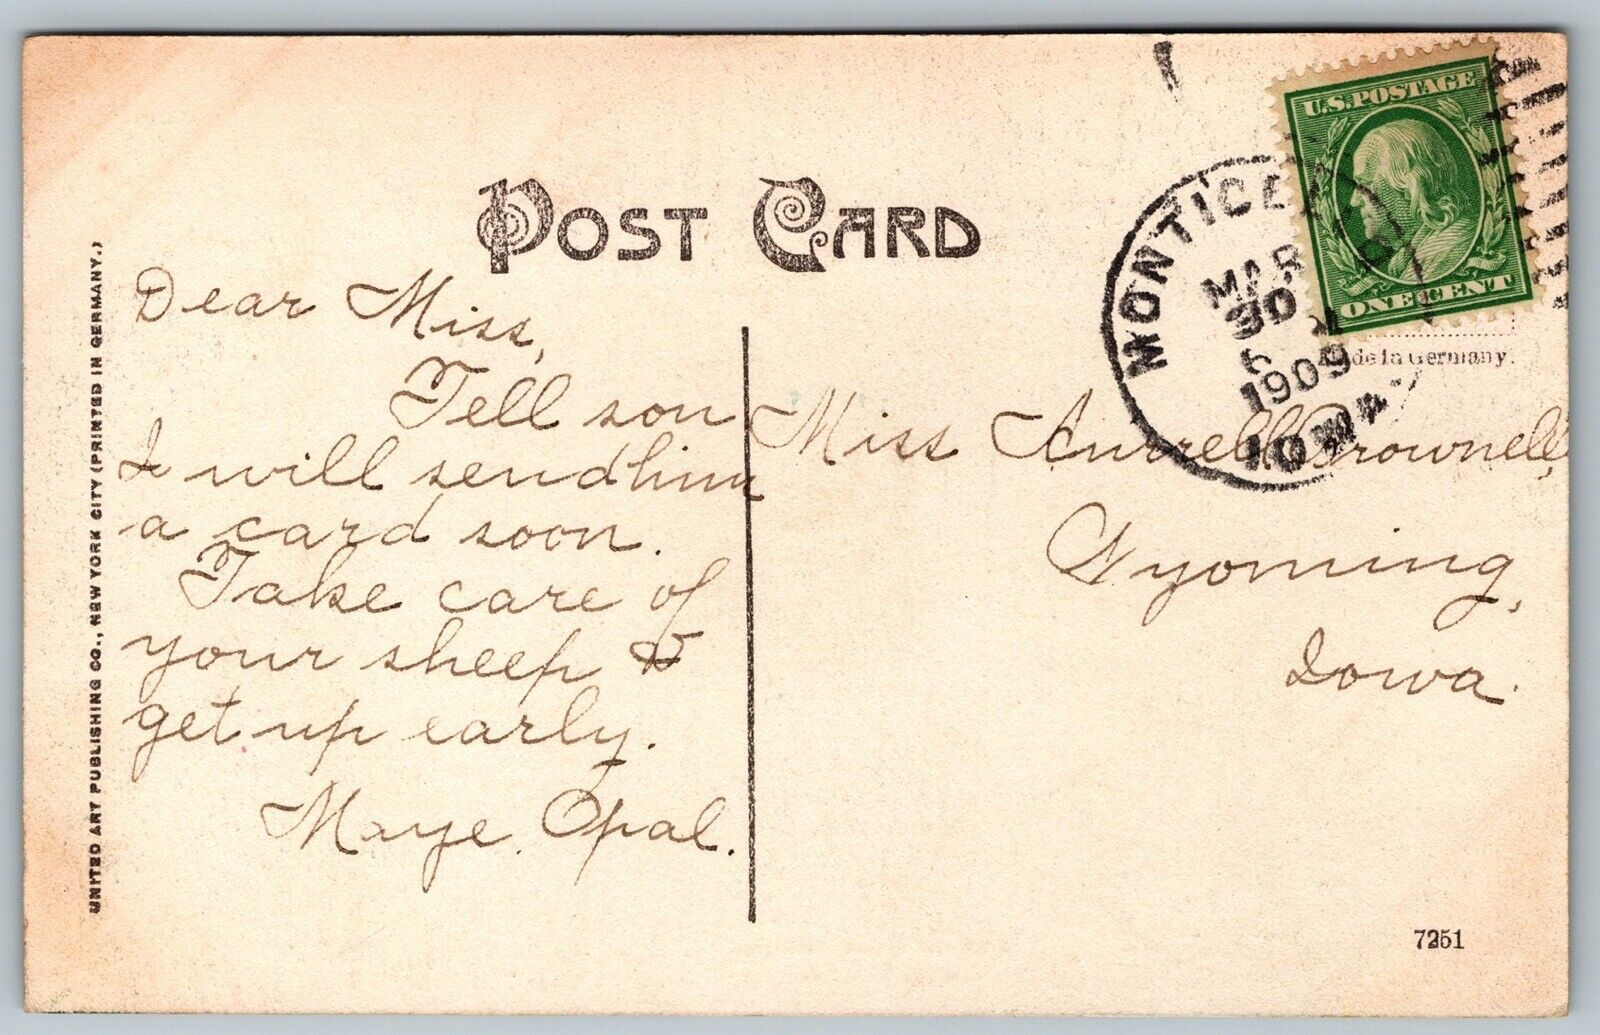 POST CARD
U.S. POSTAGE
ONE CENT
MONTICE
MAR
30
6
1909
IOWA.
Made in Germany.
Dear Miss,
Tell son
I will send him
a card soon.
Take care of
your sheep &
get up early.
Maye Opal.
Miss Aurrell Brownell,
Wyoming,
Iowa.
UNITED ART PUBLISHING CO., NEW YORK CITY (PRINTED IN GERMANY.)
7251